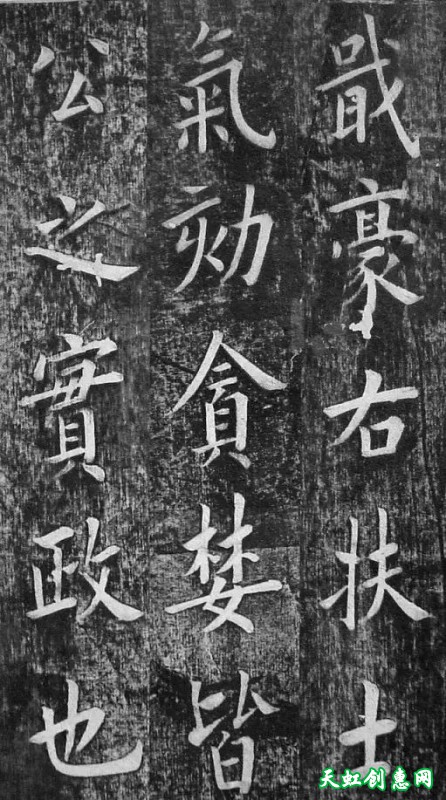 戢豪右扶士
氣劾貪婪皆
公之實政也
天虹创惠网